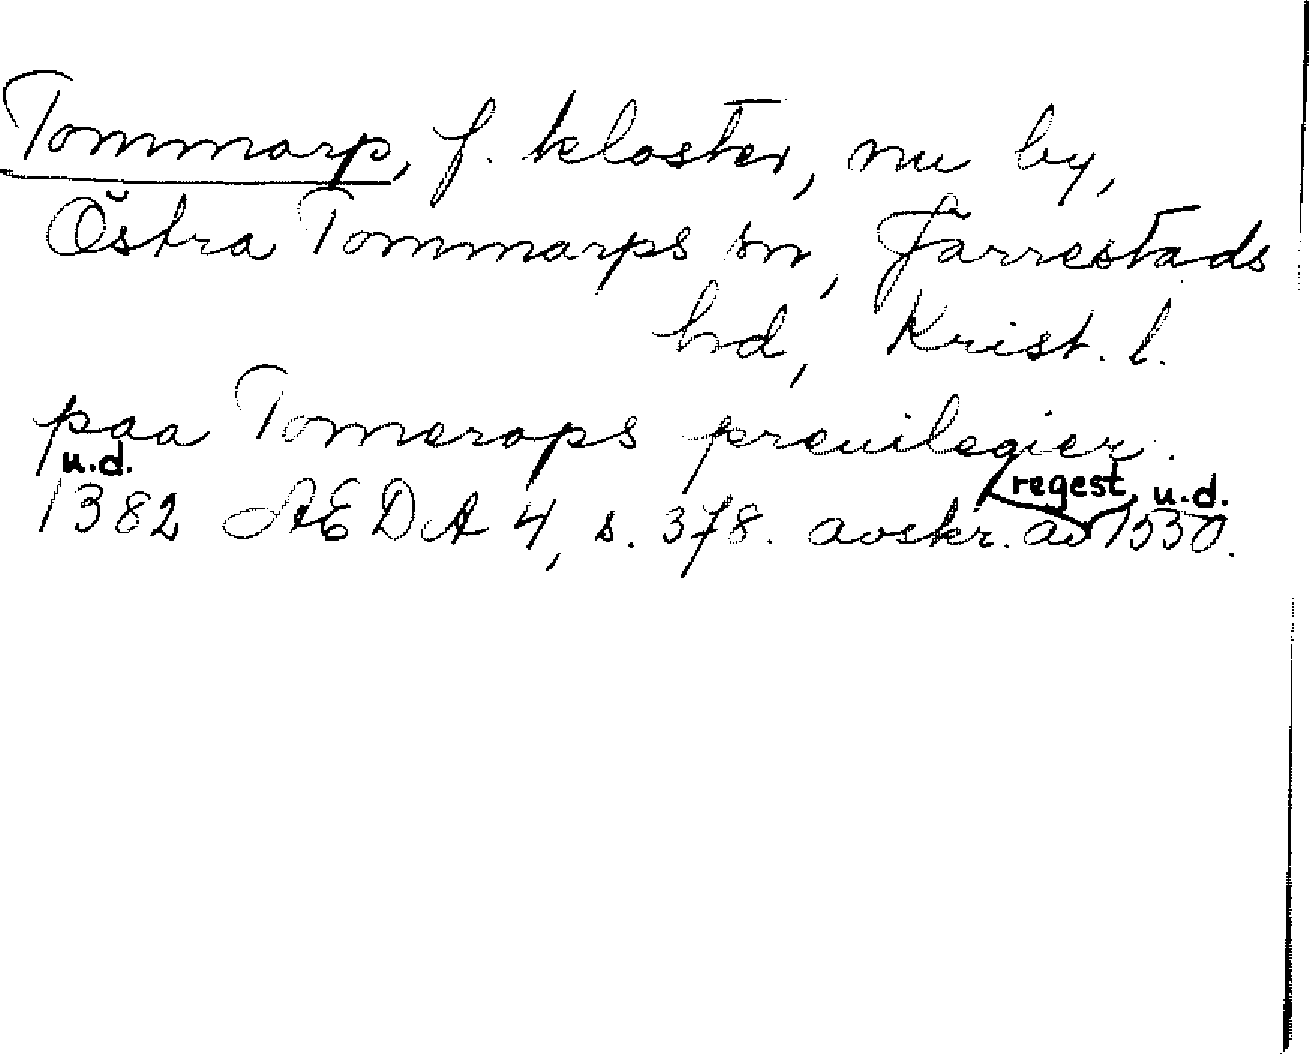 Tommarp, f. kloster, nu by,
Östra Tommarps sn, Järrestads
hd, Krist. l.
paa Tomerops preuilegier.
u.d. regest, u.d.
1382 AEDA 4, s. 378. avskr. av 1530.